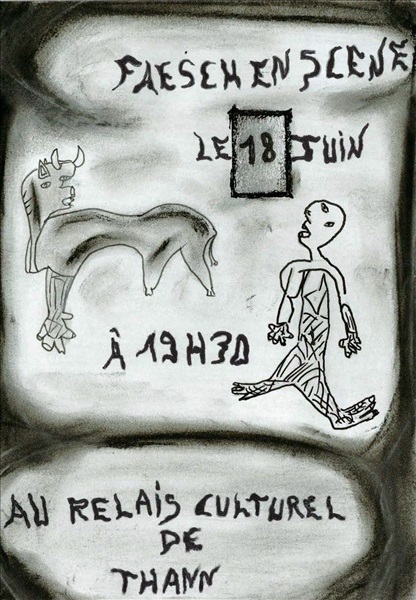 FAESCH EN SCENE
LE 18 JUIN
À 19H30
AU RELAIS CULTUREL
DE
THANN